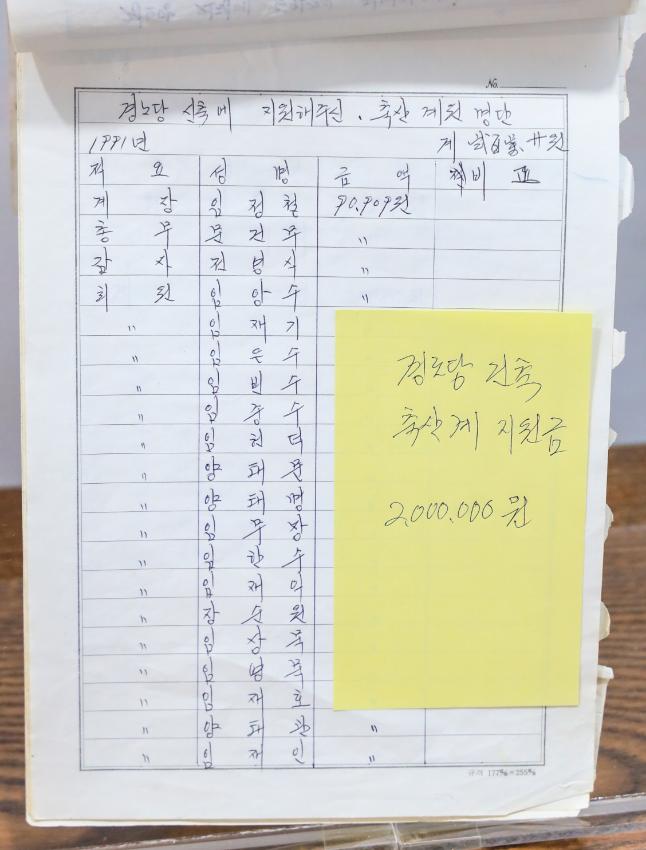 No.
경노당 신축에 지원해주신. 축산 계원 명단
1991년 계 貳百萬 원
적 요 성 명 금 액 비 고
계 장 임 정 철 90,909원
총 무 문 건 주 〃
감 사 전 병 식 〃
회 원 임 양 수 〃
〃 임 재 기
〃 임 운 수
〃 임 빈 수
〃 임 중 수
〃 임 천 덕
〃 양 태 문
〃 양 태 명
〃 임 무 장
〃 임 한 수
〃 임 재 익
〃 장 수 원
〃 임 상 묵
〃 임 병 묵
〃 임 재 호
〃 양 태 관 〃
〃 임 재 인 〃
경로당 건축
축산계 지원금
2,000,000원
규격 177㎜×255㎜